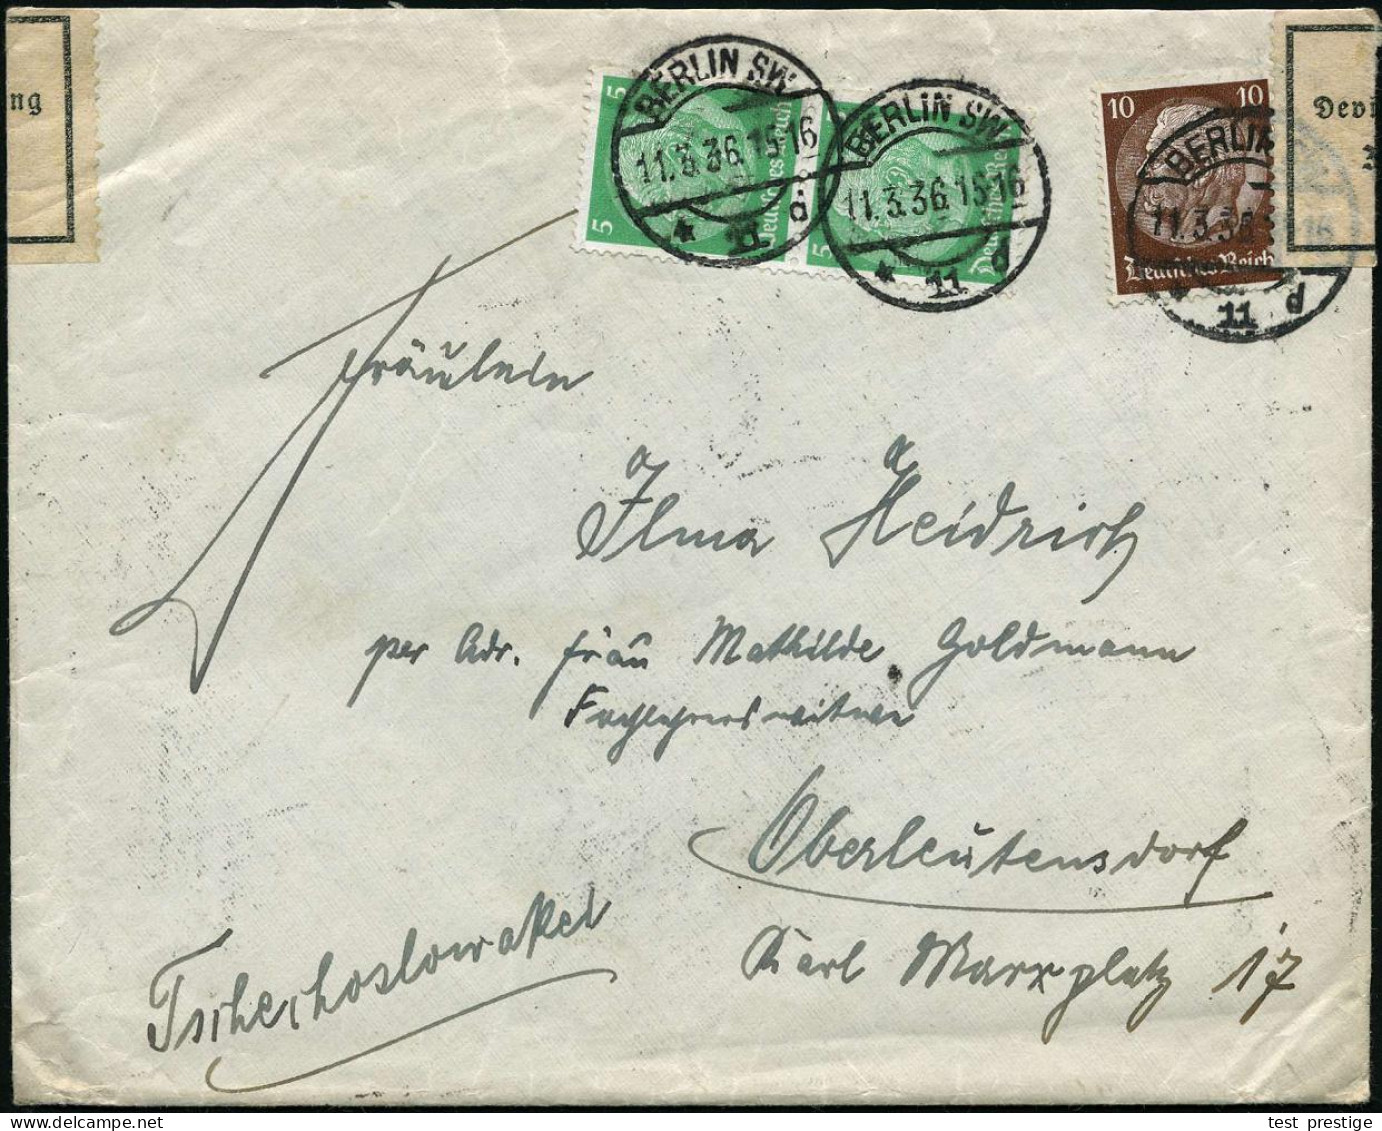 ng
BERLIN SW
11.3.36.15-16
* 11 d
BERLIN SW
11.3.36.15-16
* 11 d
5
5
Deutsches Reich
5
Deutsches Rei
10 10
Deutsches Reich
BERLIN
11.3.36
16
11 d
Devi
Fräulein
Ilma Heidrich
per Adr. Frau Mathilde Goldmann
Fachlehrerswitwe
Oberleutensdorf
Karl Marxplatz 17
Tschechoslowakei
test prestige